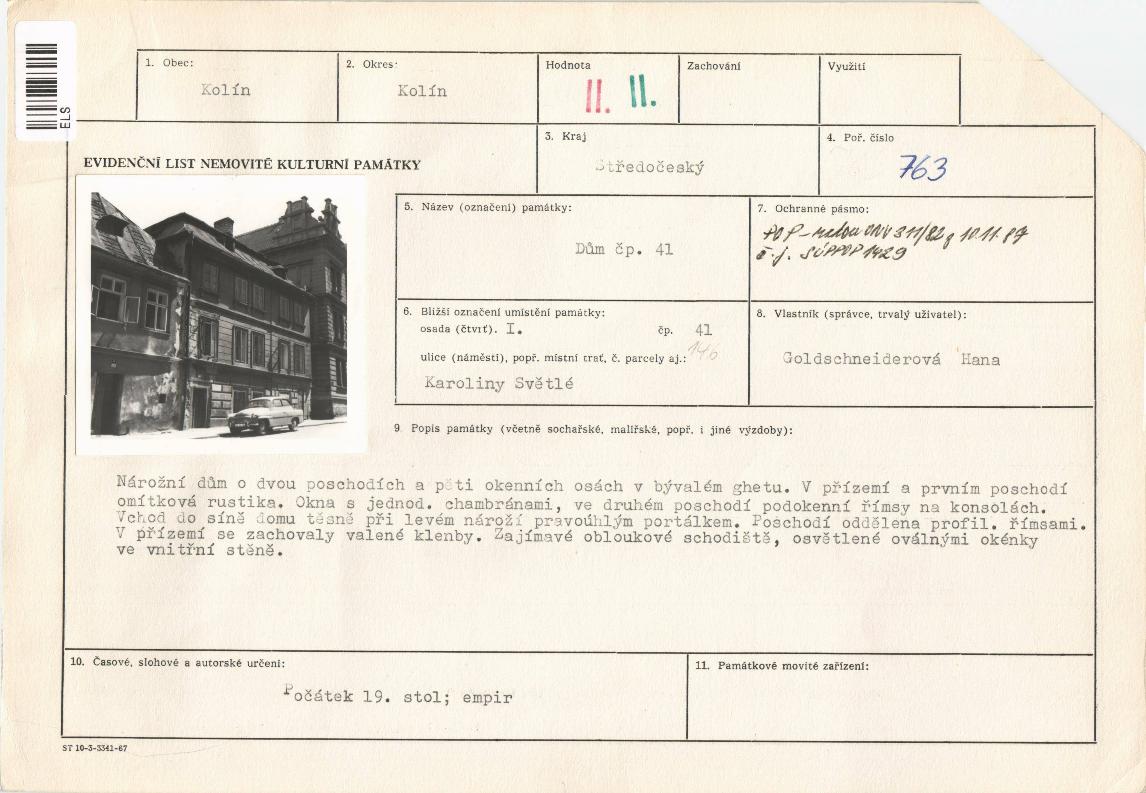 ELS
1. Obec:
Kolín
2. Okres:
Kolín
Hodnota
II. II.
Zachování
Využití
3. Kraj
Středočeský
4. Poř. číslo
763
EVIDENČNÍ LIST NEMOVITÉ KULTURNÍ PAMÁTKY
5. Název (označení) památky:
Dům čp. 41
7. Ochranné pásmo:
POP - radou ONV 311/82 10.11.87
č.j. SÚPPOP 1429
6. Bližší označení umístění památky:
osada (čtvrť). I. čp. 41
ulice (náměstí), popř. místní trať, č. parcely aj.: 146
Karoliny Světlé
8. Vlastník (správce, trvalý uživatel):
Goldschneiderová Hana
9. Popis památky (včetně sochařské, malířské, popř. i jiné výzdoby):
Nárožní dům o dvou poschodích a pěti okenních osách v bývalém ghetu. V přízemí a prvním poschodí
omítková rustika. Okna s jednod. chambránami, ve druhém poschodí podokenní římsy na konsolách.
Vchod do síně domu těsně při levém nároží pravoúhlým portálkem. Poschodí oddělena profil. římsami.
V přízemí se zachovaly valené klenby. Zajímavé obloukové schodiště, osvětlené oválnými okénky
ve vnitřní stěně.
10. Časové, slohové a autorské určení:
Počátek 19. stol; empir
11. Památkové movité zařízení:
ST 10-3-3341-67